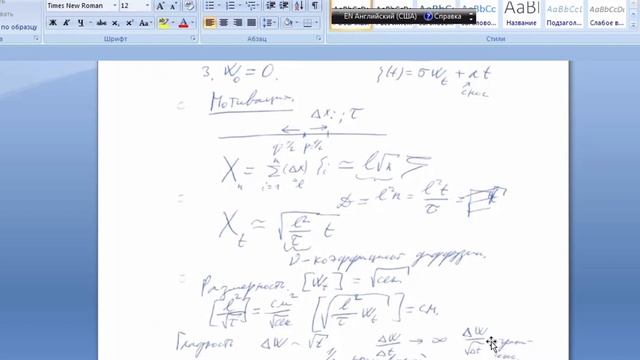 по образцу
Times New Roman
12
EN Английский (США)
Справка
Шрифт
Абзац
Стили
Название
Подзагол...
Слабое в...
3. W₀ = 0.
ξ(t) = σW_t + at
снос
Мотивация.
Δx_i ; τ
q 1/2 p 1/2
X_n = Σ_{i=1}^{n} (Δx) ξ_i ≃ l√n ξ
D = l²n = l²t/τ =
X_t ≃ √(l²/τ t)
D - коэффициент диффузии.
Размерность. [W_t] = √сек.
[√(l²/τ)] = см/√сек [√(l²/τ) W_t] = см.
Гладкость ΔW ~ √t ΔW/Δt → ∞ ΔW/Δt